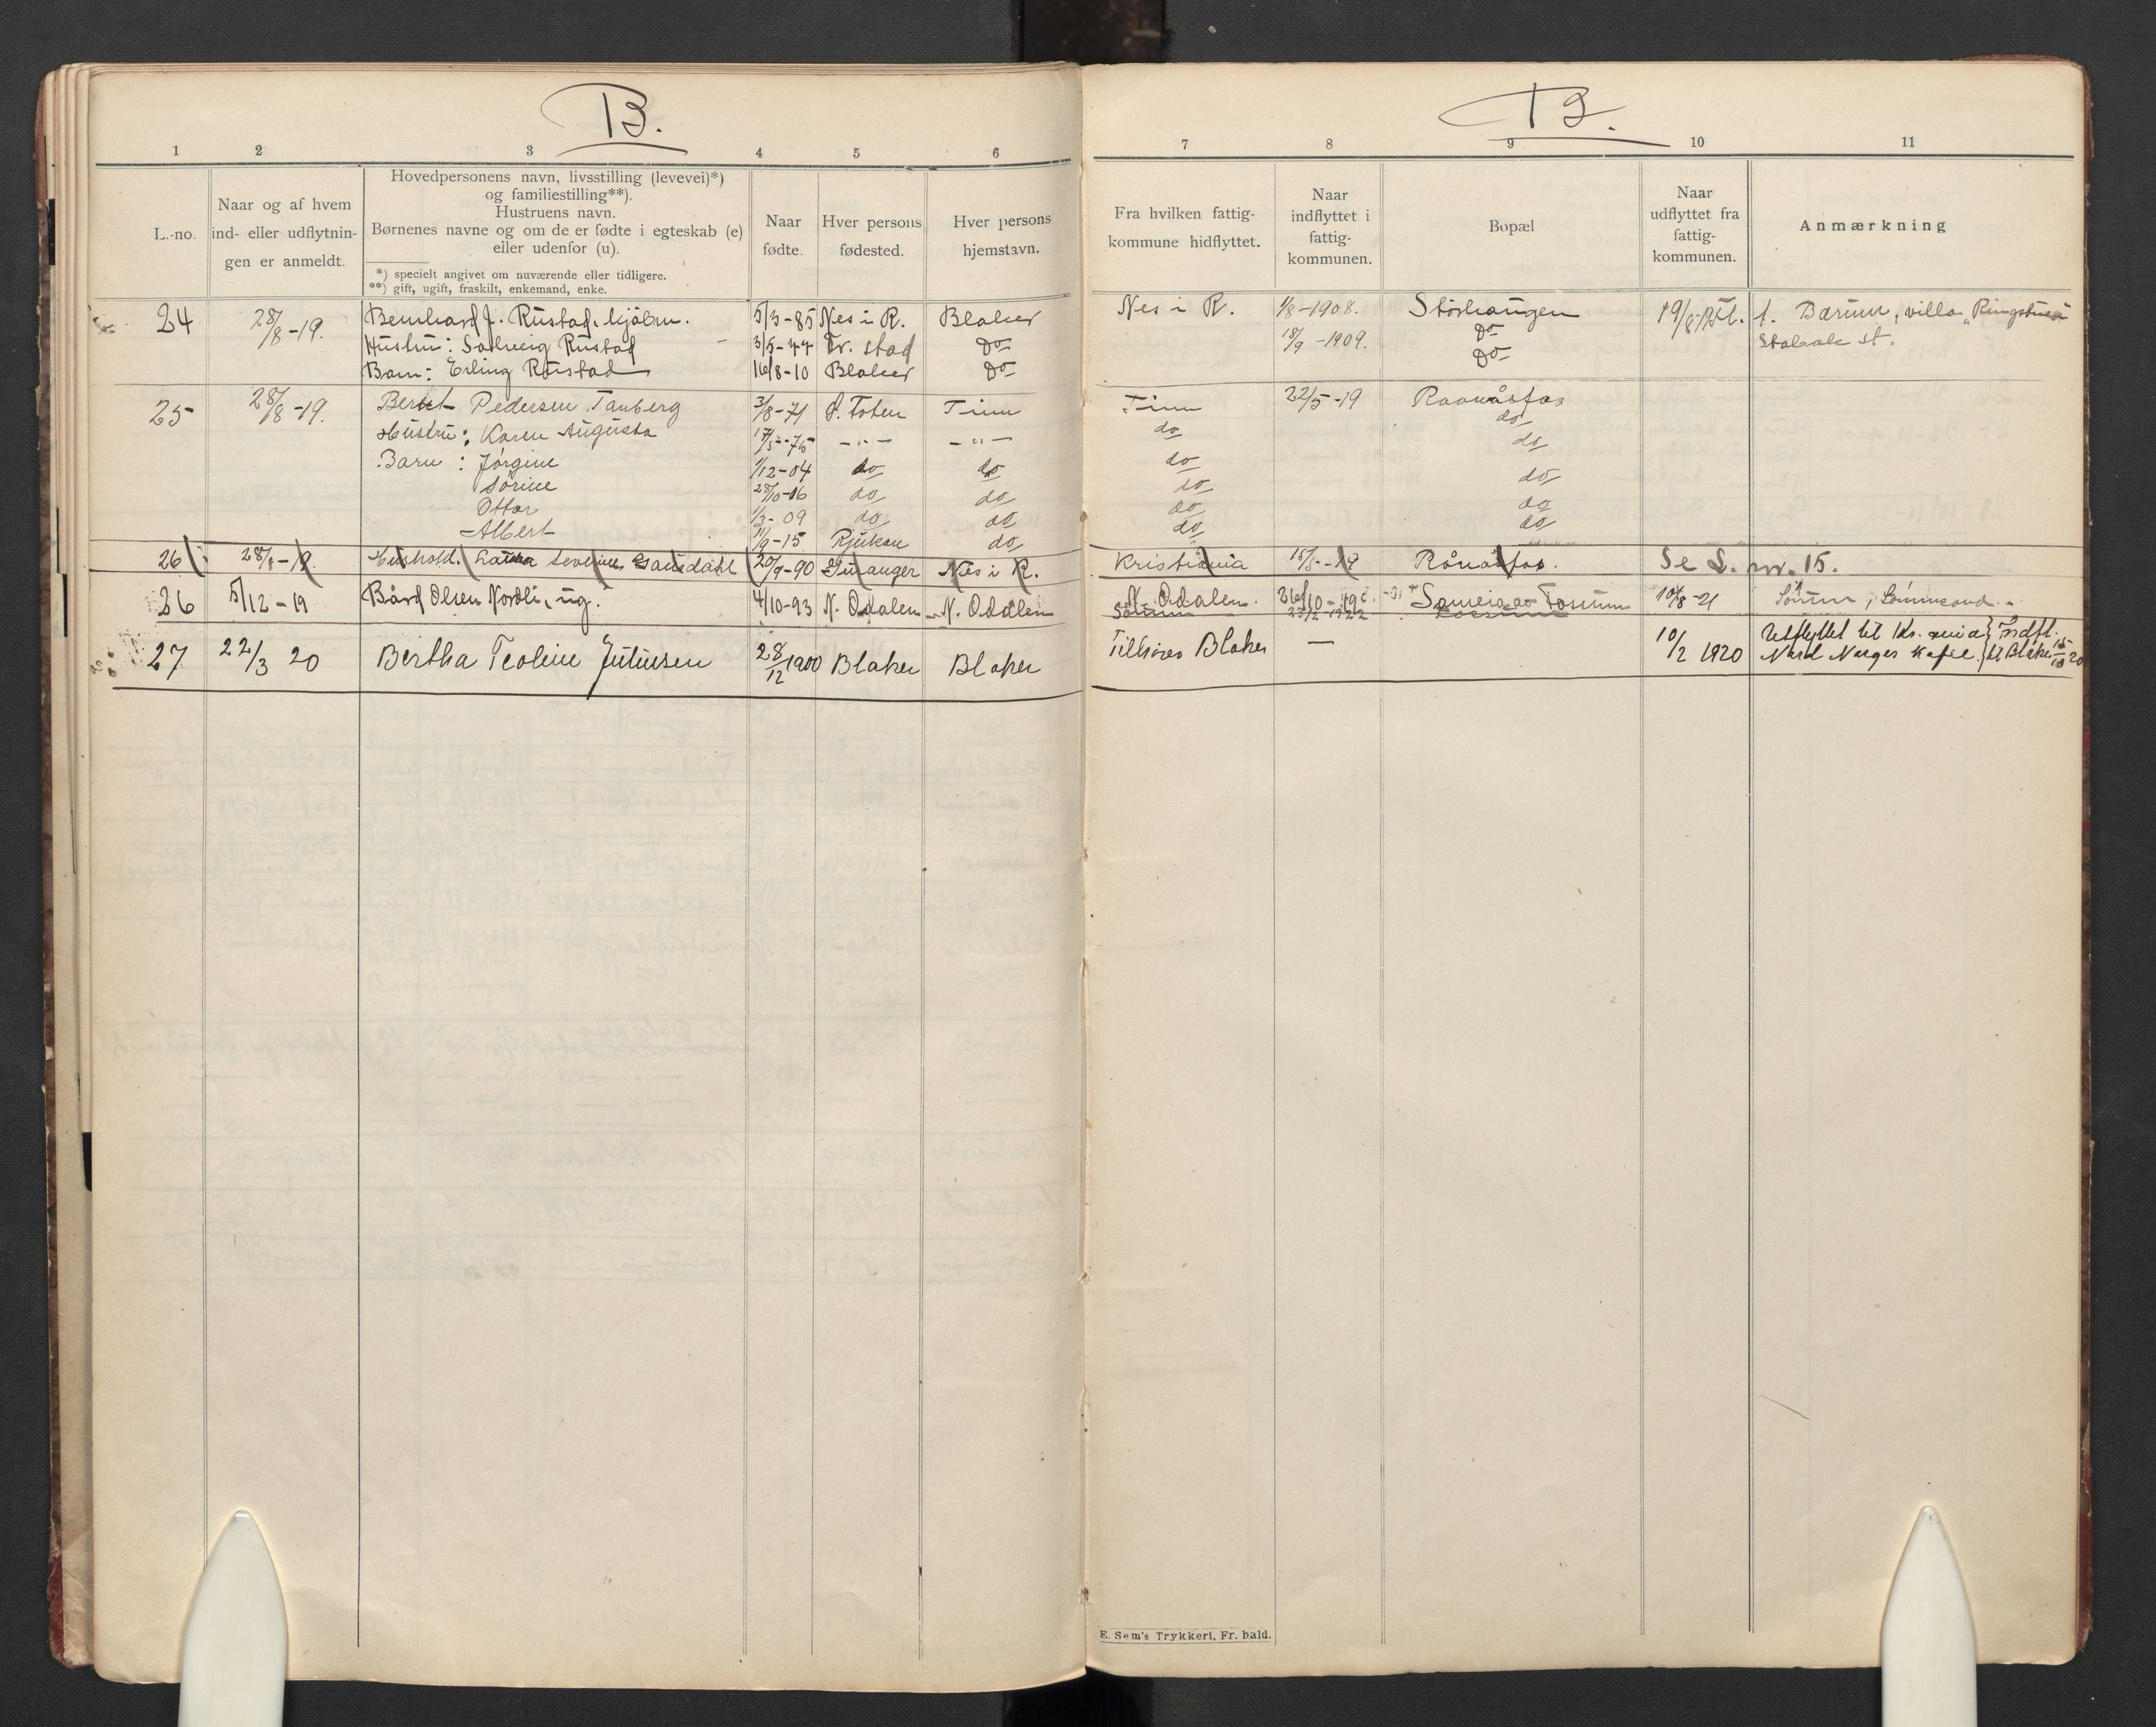 B.
1 2 3 4 5 6
L.-no.
Naar og af hvem
ind- eller udflytnin-
gen er anmeldt.
Hovedpersonens navn, livsstilling (levevei)*)
og familiestilling**).
Hustruens navn.
Børnenes navne og om de er fødte i egteskab (e)
eller udenfor (u).
*) specielt angivet om nuværende eller tidligere.
**) gift, ugift, fraskilt, enkemand, enke.
Naar
fødte.
Hver persons
fødested.
Hver persons
hjemstavn.
24 28/8-19. Bernhard J. Rustad. 5/3-85 Nes i R. Blaker
Hustru: Solveig Rustad 3/5-77 Fr. stad Do
Barn: Erling Rustad 16/8-10 Blaker Do
25 28/8-19. Bernt Pedersen Tanberg 3/8-71 Ø. Toten Tinn
Hustru: Karen Augusta 17/3-75 -"- -"-
Barn: Jørgine 1/12-04 do do
Sørine 28/10-06 do do
Ottar 1/3-09 do do
Albert 11/9-15 Rjukan do
26 28/8-19. Hushold. Laura Severine Gausdahl 20/9-90 Nes i R.
26 5/12-19 Bård Olsen Nordli, ug. 4/10-93 N. Odalen N. Odalen
27 22/3 20 Bertha Teoline Juliussen 28/12 1900 Blaker Blaker
B.
7 8 9 10 11
Fra hvilken fattig-
kommune hidflyttet.
Naar
indflyttet i
fattig-
kommunen.
Bopæl
Naar
udflyttet fra
fattig-
kommunen.
Anmærkning
Nes i R. 1/8-1908. Storhaugen t. Bærum, villa "Ringstuen
18/9-1909. Do Stabæk st.
Do
Tinn 22/5-19 Raanåsfos
do do
do do
do do
do do
do do
Kristiania 15/5-19 Rånåsfos. Se L. nr. 15.
N. Odalen. 26/10-19 Fossum 10/8-21 Sørum, Sørumsand.
Sørum 1922
Tilhører Blaker — 10/2 1920 Utflyttet til Kr.ania } Indfl.
Nord Norges Kafe. } til Blaker 15/10 20
E. Sem's Trykkeri, Fr. hald.